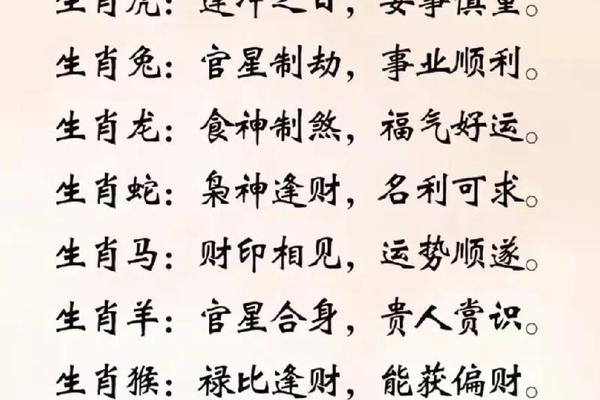 生肖虎：逢冲之日，要事慎重。
生肖兔：官星制劫，事业顺利。
生肖龙：食神制煞，福气好运。
生肖蛇：枭神逢财，名利可求。
生肖马：财印相见，运势顺遂。
生肖羊：官星合身，贵人赏识。
生肖猴：禄比逢财，能获偏财。